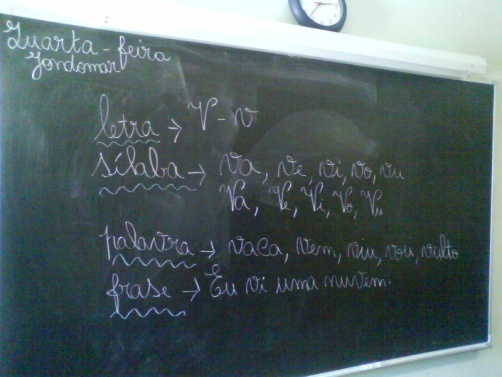 Quarta-feira
Gondomar
letra → V-v
sílaba → va, ve, vi, vo, vu
Va, Ve, Vi, Vo, Vu
palavra → vaca, vem, viu, vou, vulto
frase → Eu vi uma nuvem.